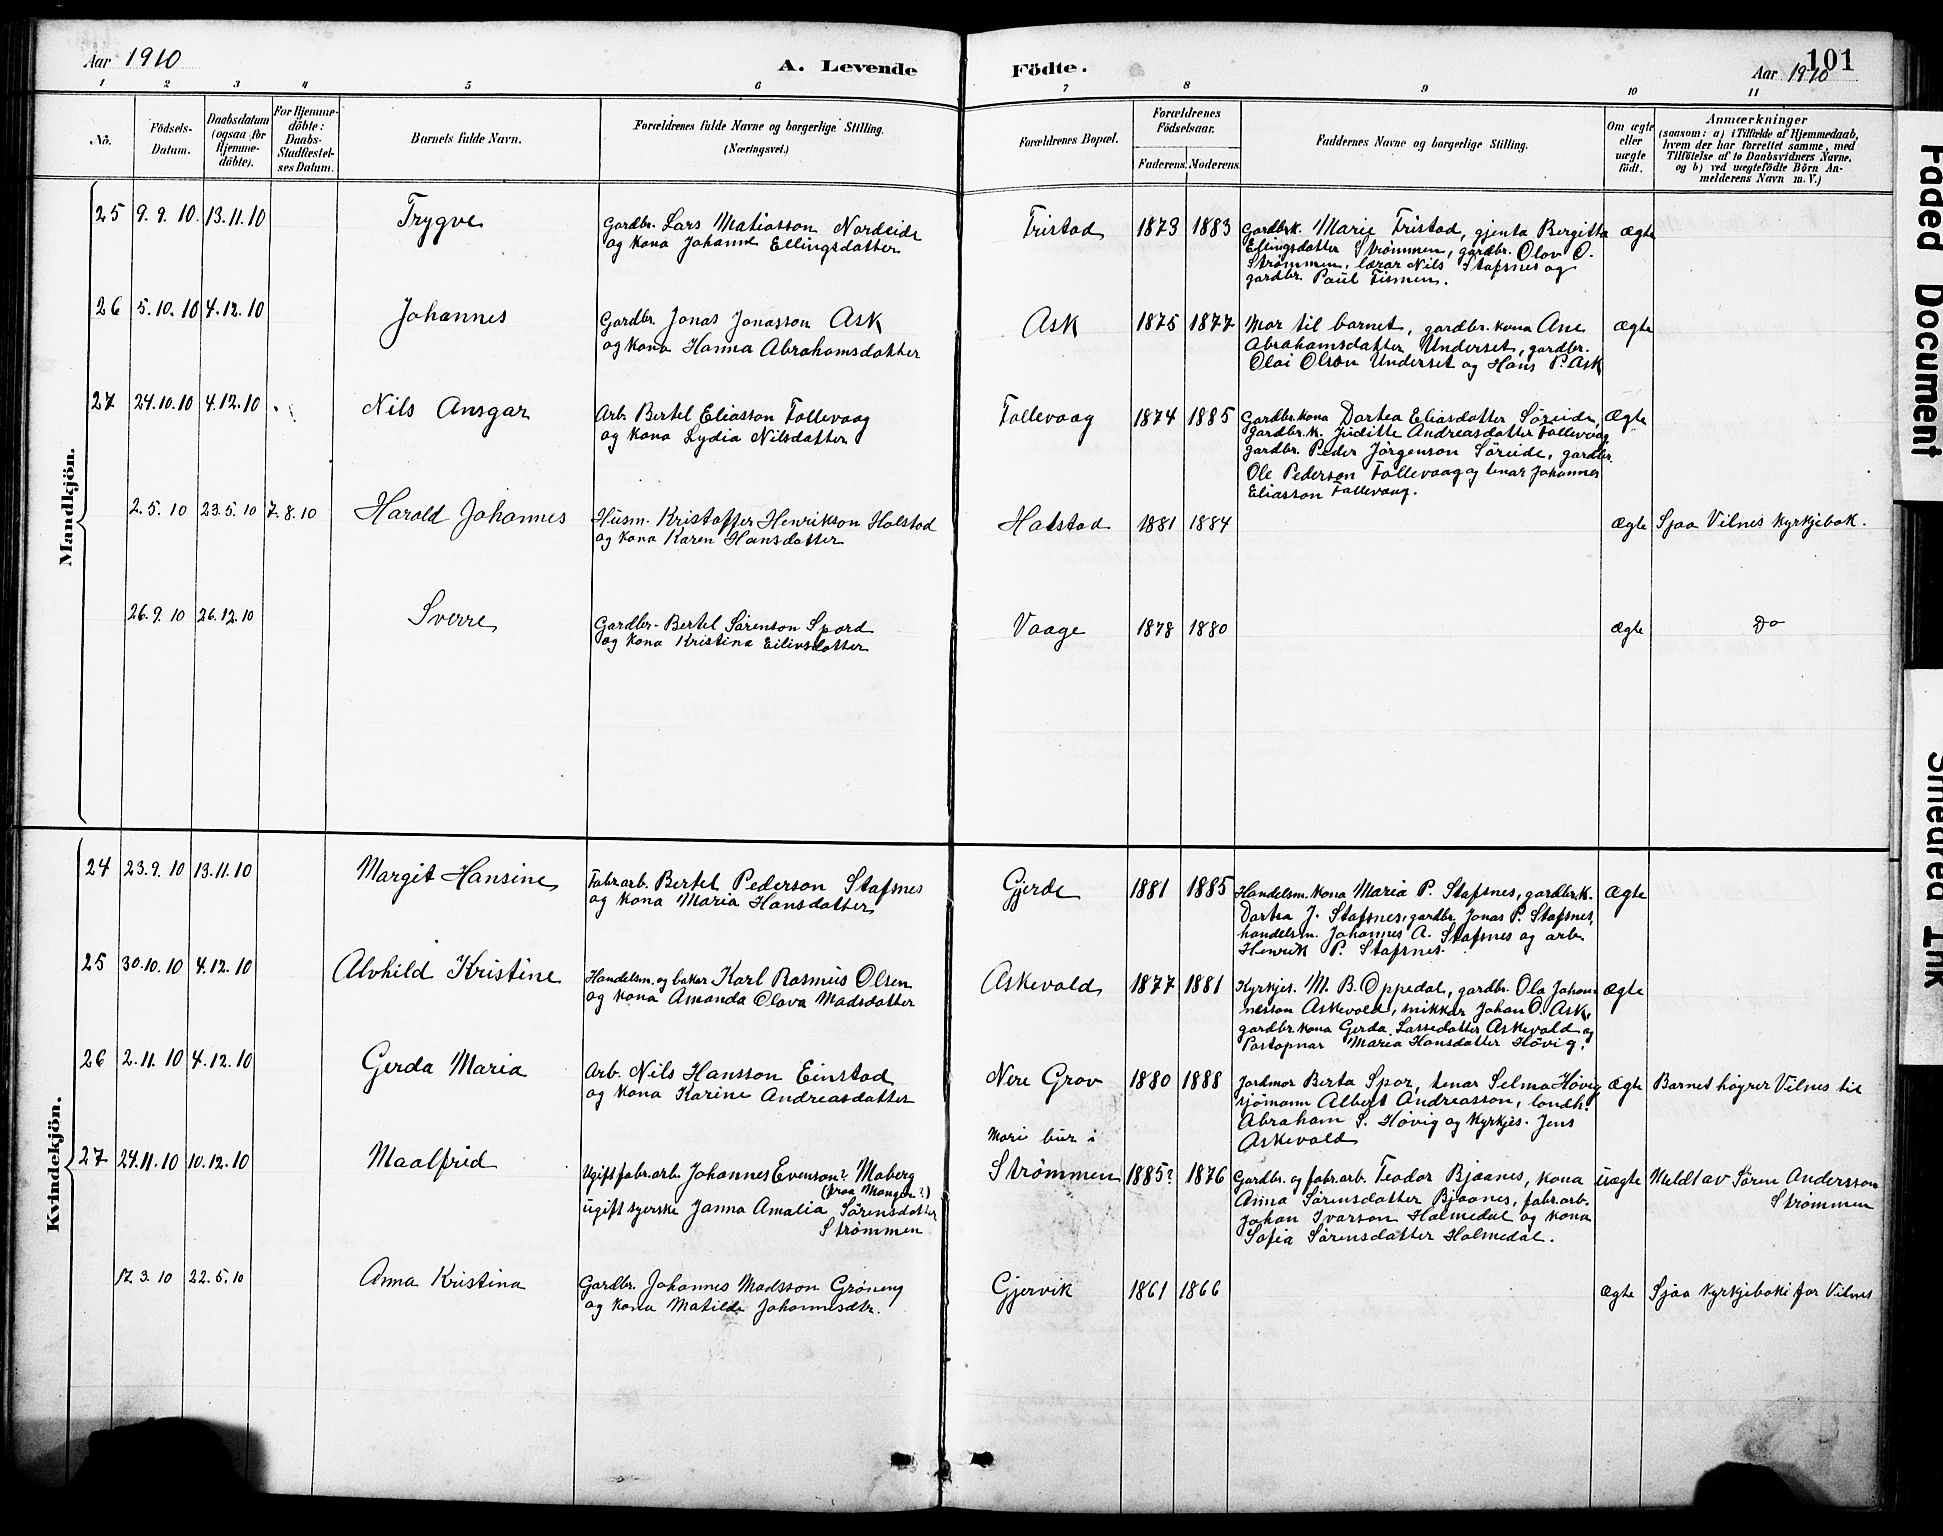 Aar 1910
A. Levende Födte.
101
Aar 1910
1 2 3 4 5 6 7 8 9 10 11
Nö.
Födsels-Datum.
Daabsdatum (ogsaa for Hjemme-döbte).
For Hjemme-döbte: Daabs-Stadfæstel-ses Datum.
Barnets fulde Navn.
Forældrenes fulde Navne og borgerlige Stilling.
(Næringsvei.)
Forældrenes Bopæl.
Forældrenes Födselsaar.
Faderens. Moderens.
Faddernes Navne og borgerlige Stilling.
Om ægte eller uægte födt.
Anmærkninger
(saasom: a) i Tilfælde af Hjemmedaab,
hvem der har forrettet samme, med
Tilföielse af to Daabsvidners Navne,
og b) ved uægtefödte Börn An-
melderens Navn m. V.)
Mandkjön.
25 9.9.10. 13.11.10 Trygve
Gardbr. Lars Matiasson Nordeide
og kona Johanne Ellingsdatter
Tristad 1873 1883
Gardbrk. Marie Tristad, gjenta Bergitta
Ellingsdatter Strømmen, gardbr. Olov O.
Strømmen, lærar Nils Stafsnes og
gardbr. Paul Tismen.
ægte
26 5.10.10 4.12.10 Johannes
Gardbr. Jonas Jonasson Ask
og kona Hanna Abrahamsdatter
Ask 1875 1877
Mor til barnet, gardbr. kona Ane
Abrahamsdatter Underset, gardbr.
Olai Olson Underset og Hans P. Ask
ægte
27 24.10.10 4.12.10 Nils Ansgar
Arb. Bertel Eliasson Follevaag
og kona Lydia Nilsdatter
Follevaag 1874 1885
Gardbr. kona Dortea Eliasdatter Søreide,
gardbr. k. Juditte Andreasdatter Follevaag
gardbr. Peder Jörgenson Søreide, gardbr.
Ole Pederson Follevaag og tenar Johannes
Eliasson Follevaag.
ægte
2.5.10 23.5.10 7.8.10 Harald Johannes
Husm. Kristoffer Henrikson Holstad
og kona Karen Hansdatter
Hatstad 1881 1884
ægte Sjaa Vilnes kyrkjebok.
26.9.10 26.12.10 Sverre
Gardbr. Bertel Sørenson Spord
og kona Kristina Eilivsdatter
Vaage 1878 1880
ægte Do
Kvindekjön.
24 23.9.10 13.11.10 Margit Hansine
Fabr.arb. Bertel Pederson Stafsnes
og kona Maria Hansdatter
Gjerde 1881 1885
Handelsm. kona Maria P. Stafsnes, gardbr.k.
Dortea J. Stafsnes, gardbr. Jonas P. Stafsnes,
handelsm. Johannes A. Stafsnes og arb.
Henrik P. Stafsnes.
ægte
25 30.10.10 4.12.10 Alvhild Kristine
Handelsm. og bakar Karl Rasmus Olsen
og kona Amanda Olava Madsdatter
Askevold 1877 1881
Kyrkjes. M. B. Oppedal, gardbr. Ola Johan-
nesson Askevold, snikkar Johan O. Ask,
gardbr. kona Gerda Lassedatter Askevold og
Postopnar Maria Hansdatter Høvig.
ægte
26 2.11.10 4.12.10 Gerda Maria
Arb. Nils Hansson Einstad
og kona Karine Andreasdatter
Nere Grov 1880 1888
Jordmor Berta Spor, tenar Selma Høvig
sjømann Albert Andreasson, landh.
Abraham S. Høvig og kyrkjes. Jens
Askevold
ægte Barnet høyrer Vilnes til
27 24.11.10 10.12.10 Maalfrid
Ugift fabr.arb. Johannes Evenson? Moberg
(fraa Manger?)
ugift syerske Janna Amalia Sørensdatter
Strømmen
Mori bur i
Strømmen 1885? 1876
Gardbr. og fabr.arb. Teodor Bjaanes, kona
Anna Sørensdatter Bjaanes, fabr.arb.
Johan Ivarson Holmedal og kona
Sofia Sørensdatter Holmedal.
uægte Meldt av Søren Andersson
Strømmen
17.3.10 22.5.10 Anna Kristina
Gardbr. Johannes Madsson Grøneng
og kona Matilde Johannesdtr.
Gjervik 1861 1866
ægte Sjaa kyrkjeboki for Vilnes
Faded Document
Smeared Ink